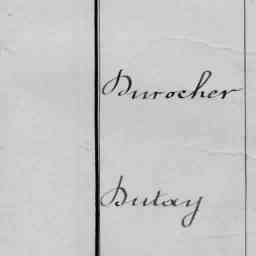 Durocher
Dutay